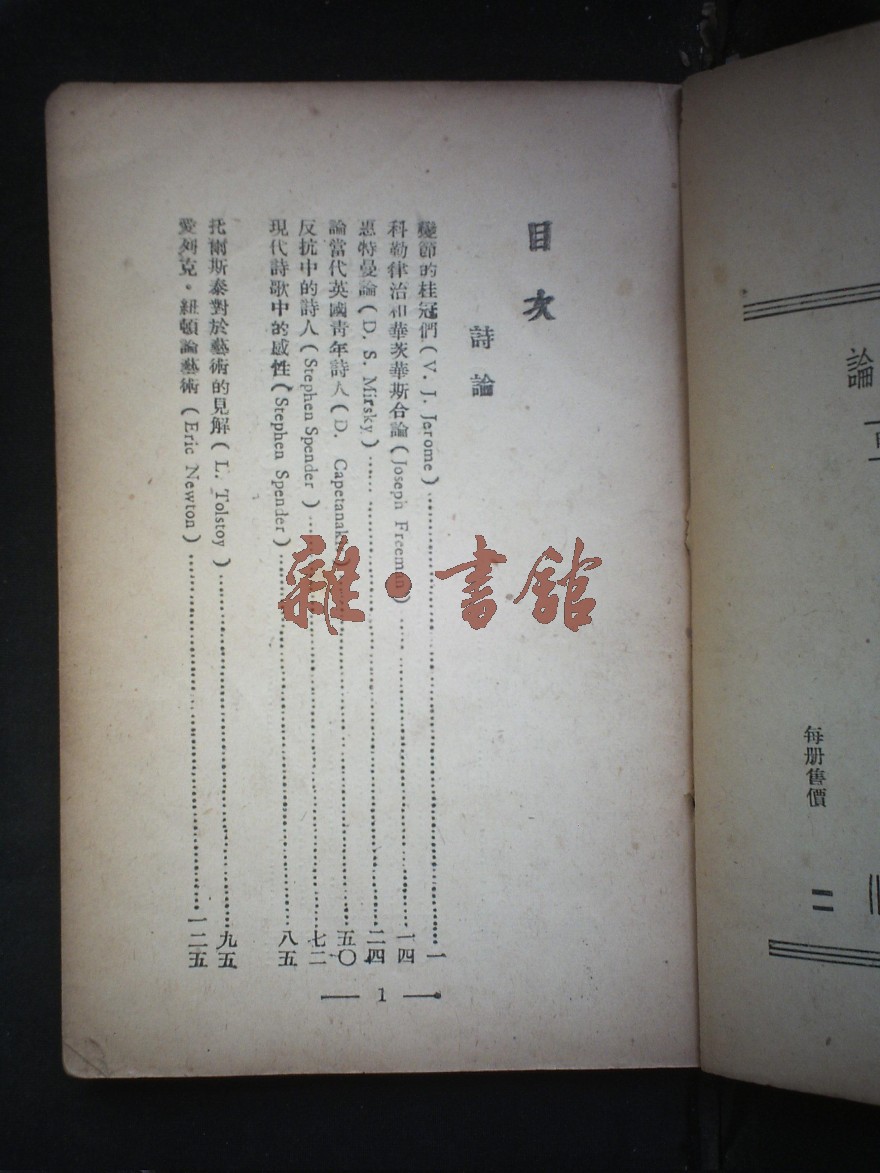 目次
詩論
變節的桂冠們(V. J. Jerome)……一
科勒律治和華茨華斯合論(Joseph Freeman)……一四
惠特曼論(D. S. Mirsky)……二四
論當代英國青年詩人(D. Capetanakis)……五〇
反抗中的詩人(Stephen Spender)……七二
現代詩歌中的感性(Stephen Spender)……八五
托爾斯泰對於藝術的見解(L. Tolstoy)……九五
愛列克·紐頓論藝術(Eric Newton)……一二五
— 1 —
論
每册售價
雜·書館